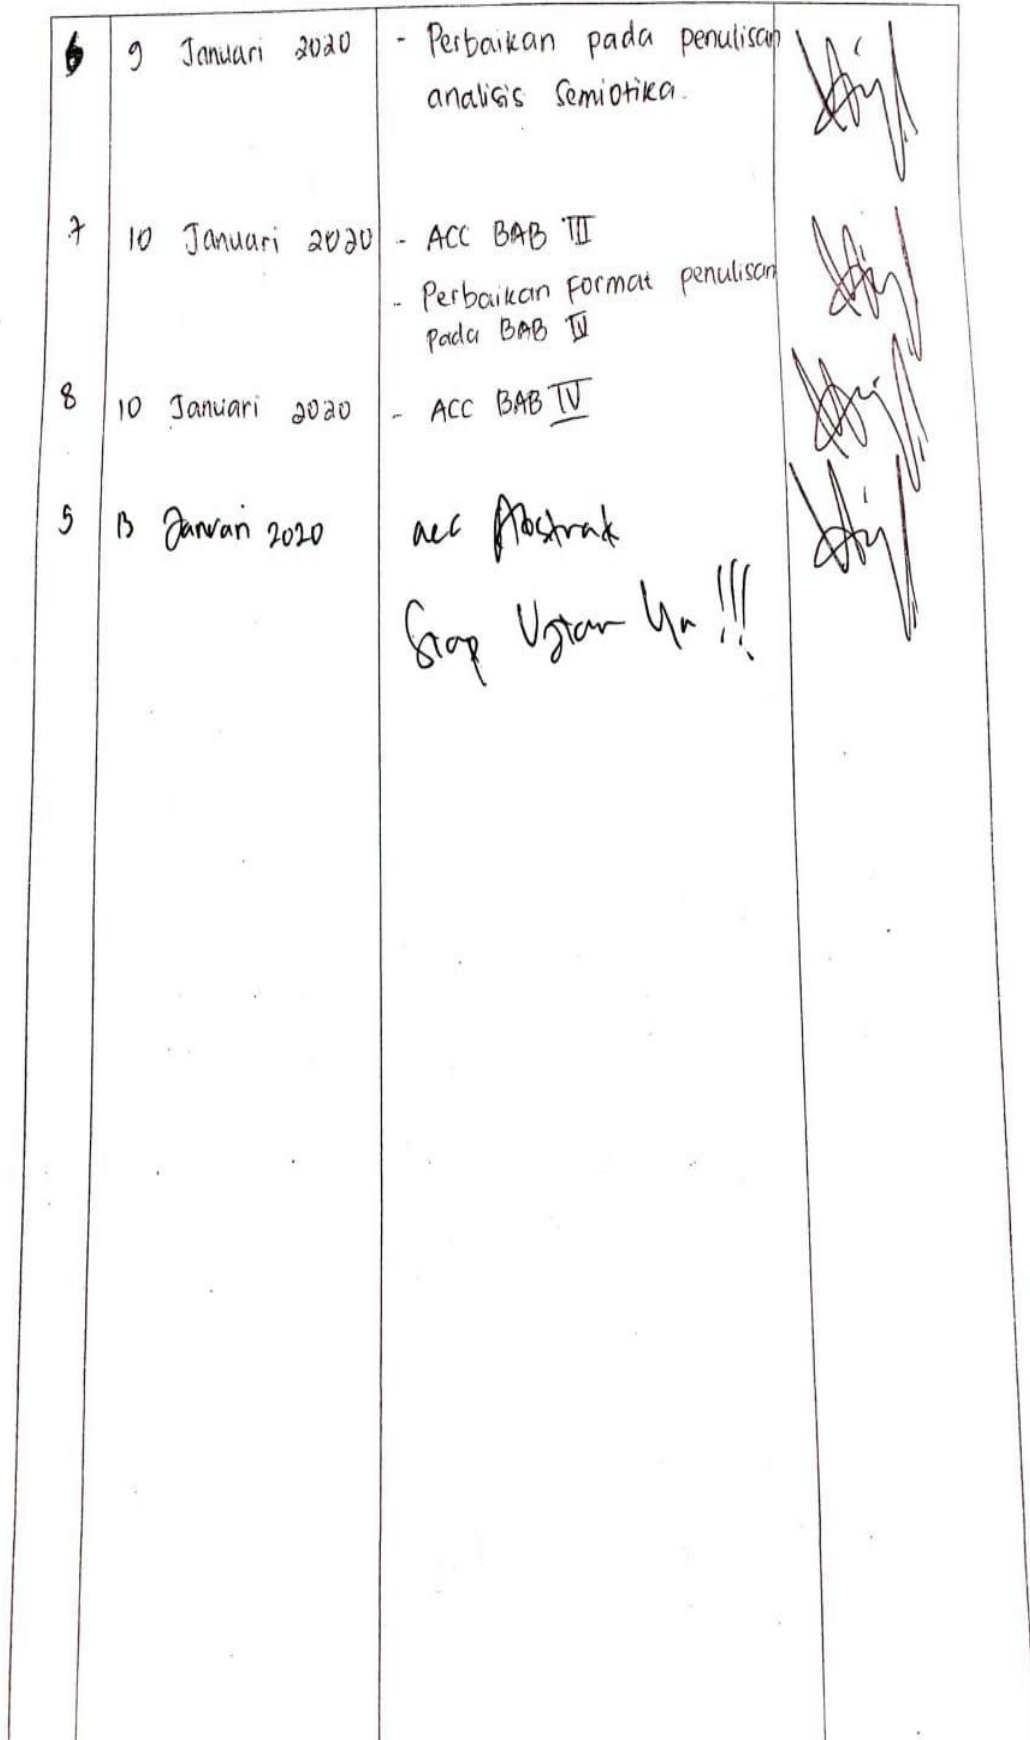 6 9 Januari 2020 - Perbaikan pada penulisan
analisis Semiotika.
7 10 Januari 2020 - ACC BAB III
- Perbaikan Format penulisan
pada BAB IV
8 10 Januari 2020 - ACC BAB IV
9 13 Januari 2020 acc Abstrak
Siap Ujian Ya !!!